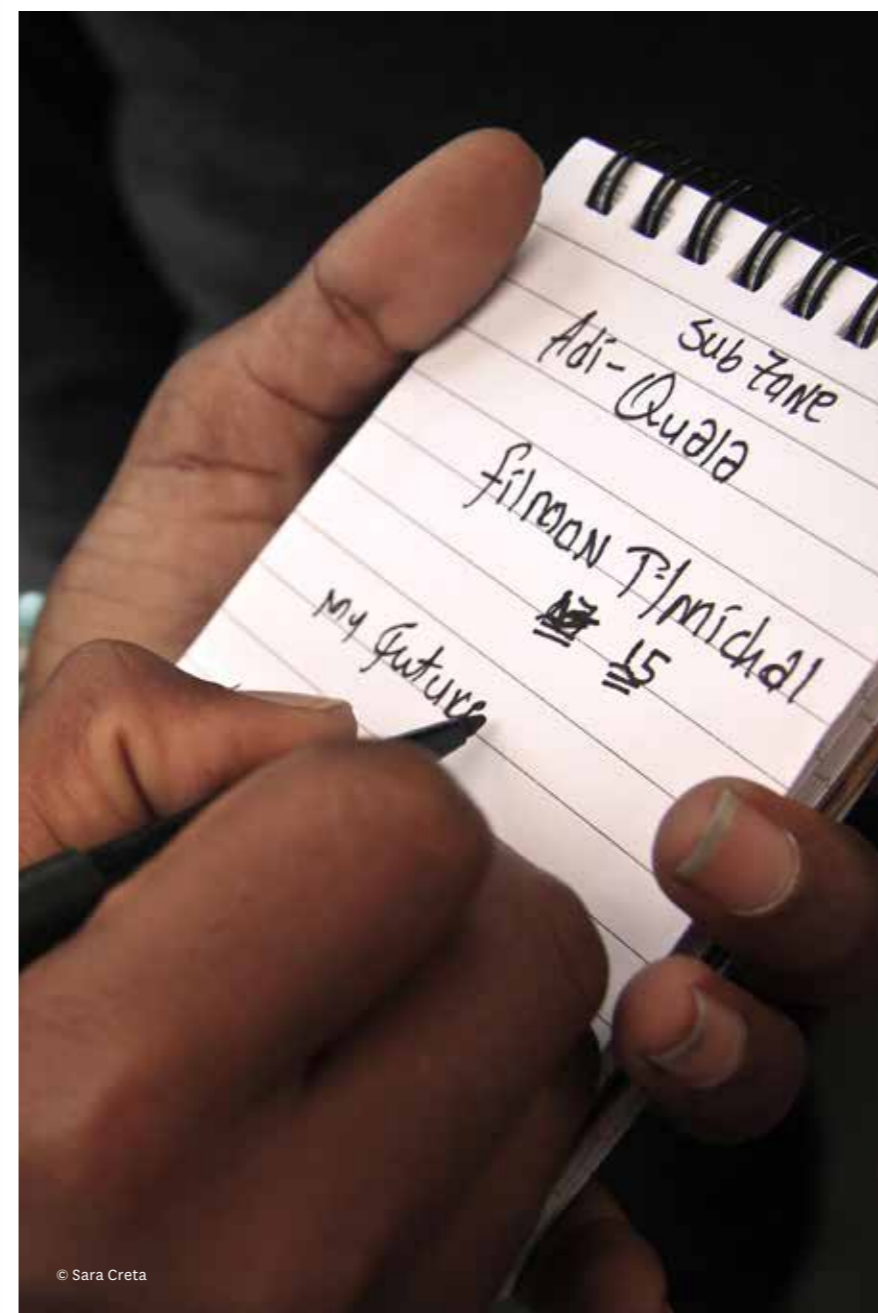 Sub Zone
Adi-Quala
filmon T/michal
15
My Future
© Sara Creta